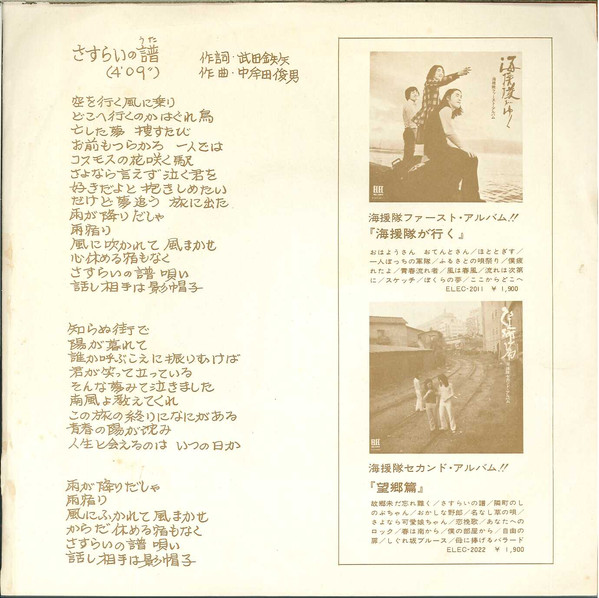 さすらいの譜
うた
(4'09")
作詞・武田鉄矢
作曲・中牟田俊男
空を行く風に乗り
どこへ行くのかはぐれ鳥
亡した夢 捜すたび
お前もつらかろ 一人では
コスモスの花咲く駅
さよなら言えず泣く君を
好きだよと抱きしめたい
だけど夢追う 旅に出た
雨が降りだしゃ
雨宿り
風に吹かれて 風まかせ
心休める宿もなく
さすらいの譜 唄い
話し相手は影帽子
知らぬ街で
陽が暮れて
誰か呼ぶこえに振りむけば
君が笑って立っている
そんな夢みて泣きました
南風よ教えてくれ
この旅の終りになにがある
青春の陽が沈み
人生と会えるのは いつの日か
雨が降りだしゃ
雨宿り
風にふかれて 風まかせ
からだ休める宿もなく
さすらいの譜 唄い
話し相手は影帽子
海援隊がゆく
海援隊ファースト・アルバム
海援隊ファースト・アルバム!!
『海援隊が行く』
おはようさん おてんとさん/ほととぎす/
一人ぼっちの軍隊/ふるさとの唄祭り/僕疲
れたよ/青春流れ者/風は春風/流れは次第
に/スケッチ/ぼくらの夢/ここからどこへ
ELEC-2011 ¥1,900
望郷篇
海援隊セカンド・アルバム
海援隊セカンド・アルバム!!
『望郷篇』
故郷未だ忘れ難く/さすらいの譜/隣町のし
のぶちゃん/おかしな野郎/名なし草の唄/
さよなら可愛娘ちゃん/恋挽歌/あなたへの
ロック/春は南から/僕の部屋から/自由の
扉/しぐれ坂ブルース/母に捧げるバラード
ELEC-2022 ¥1,900